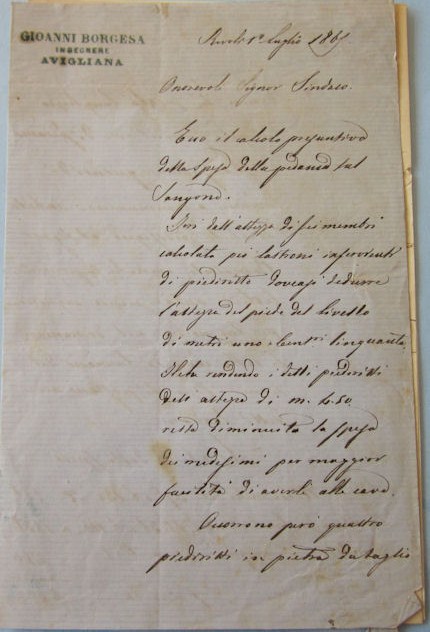 GIOANNI BORGESA
INGEGNERE
AVIGLIANA
1° luglio 186
Onorevole Signor Sindaco.
Ecco il calcolo presuntivo
della spesa della pedanca sul
Sangone.
dell'altezza di sei metri
calcolata pei lastroni
di piedritto devesi dedurre
l'altezza del piede del livello
di metri uno e cinquanta.
rendendo i detti piedritti
dell'altezza di m. 4.50
resta diminuita la spesa
dei medesimi per maggior
facilità di averli alle cave.
Occorrono però quattro
piedritti in pietra da taglio